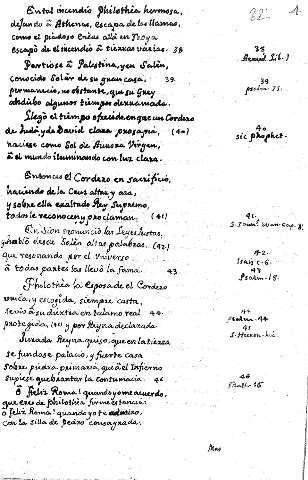 En tal incendio Philothia hermosa,
dexando à Athenas, escapa de las llamas,
como el piadoso Eneas allà en Troya
escapò de el incendio à tierras varias. 38
Partiose à Palestina, y en Salèn,
conocido Salèn de su gran casa. 39
permaneciò, no obstante, que su Grey
algunos tiempos
Llegò el tiempo ofrecido en que un Cordero
de Judà, y de David clara prosapia, (40)
naciesse como Sol de Aurora Virgen,
à el mundo iluminando con luz clara.
Entonces el Cordero en sacrificio,
haciendo de la Cruz altar, y ara,
y sobre ella exaltado Rey Supremo,
todos le reconocen y proclaman. (41)
En Sion pronunciò las Leyes justas,
y hablò desde Salèn altas palabras. (42)
que resonando por el Universo
à todas partes las llevò la fama. 43
Philothia la Esposa de el Cordero
unica, y escogida, siempre casta,
se viò à su diextra en talamo real 44
protegida, (45) y por Reyna declarada.
Jurada Reyna quiso, que en la tierra
se fundase palacio, y fuerte casa
sobre piedra primaria, que à el Infierno
supiese quebrantar la contumacia. 46
ô feliz Roma! quando yo me acuerdo,
que eres de Philothia firme estancia:
ô feliz Roma! quando yo te admiro,
con la silla de Pedro consagrada.
1.
38
Lib. 1
39
psalm. 75.
40
sic prophet.
41.
S. Juan. Cap. 8.
42.
Isai. c. 6.
43
Psalm. 18.
44
psalm. 44
45
S. hic.
46
Math. 16